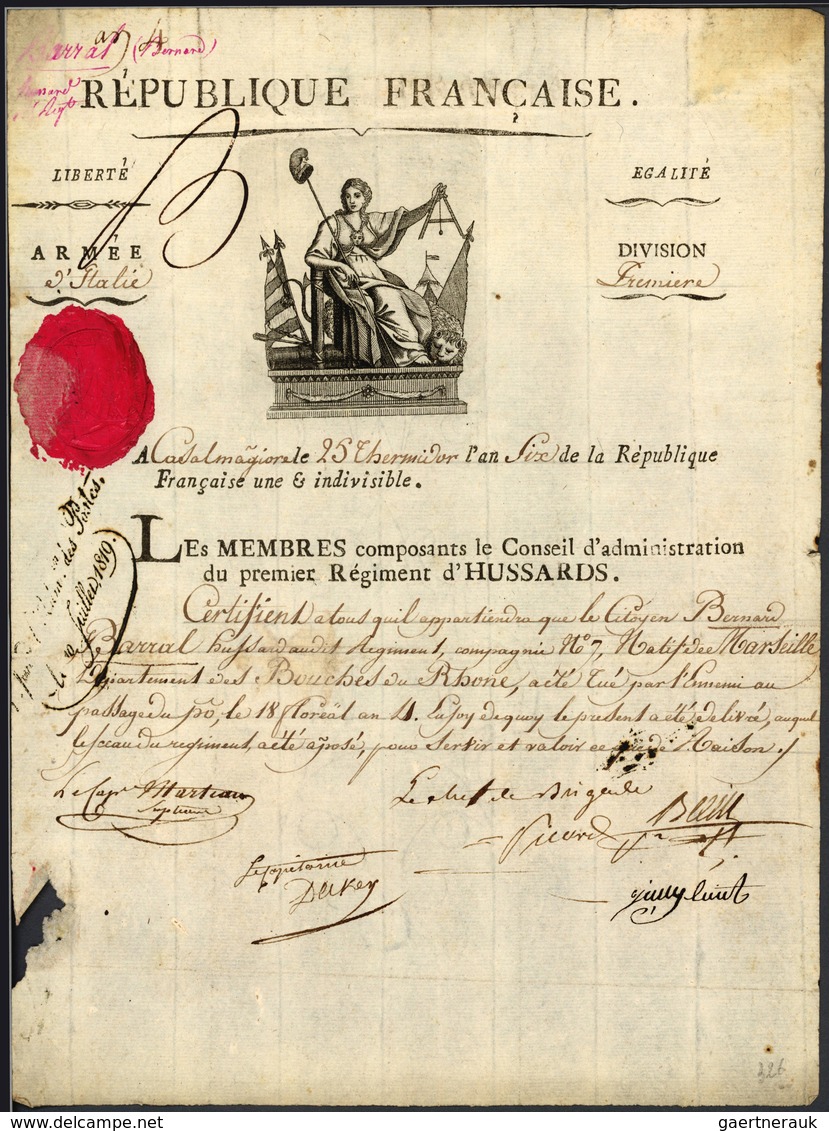 an 4
Barral (Bernard)
RÉPUBLIQUE FRANÇAISE.
LIBERTÉ
EGALITÉ
ARMÉE
d'Italie
DIVISION
Premiere
A Casalmagiore le 25 Thermidor l'an Six de la République
Française une & indivisible.
LES MEMBRES composants le Conseil d'administration
du premier Régiment d'HUSSARDS.
Certifient a tous qu'il appartiendra que le Citoyen Bernard
Barral hussard audit Regiment, compagnie No 7, Natif de Marseille
Département des Bouches du Rhone, a été tué par l'Ennemi au
passage du po, le 18 floréal an 4. En foy de quoy le present a été delivré, auquel
le sceau du regiment, a été aposé, pour servir et valoir ce que de Raison
Le Capne Marteau
Le chef de Brigade
Picard
Le Capitaine
des Postes.
le Juillet, 1819.
326
delcampe.net
gaertnerauk